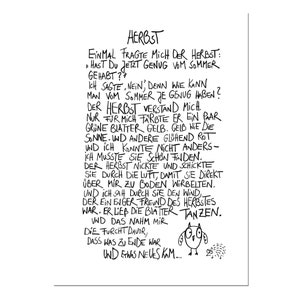 HERBST
EINMAL FRAGTE MICH DER HERBST:
„HAST DU JETZT GENUG VOM SOMMER
GEHABT?“
ICH SAGTE „NEIN“, DENN WIE KANN
MAN VOM SOMMER JE GENUG HABEN?
DER HERBST VERSTAND MICH.
NUR FÜR MICH FÄRBTE ER EIN PAAR
GRÜNE BLÄTTER GELB. GELB WIE DIE
SONNE. UND ANDERE GLÜHEND ROT
UND ICH KONNTE NICHT ANDERS-
ICH MUSSTE SIE SCHÖN FINDEN.
DER HERBST NICKTE UND SCHICKTE
SIE DURCH DIE LUFT, DAMIT SIE DIREKT
ÜBER MIR ZU BODEN WIRBELTEN.
UND ICH SAH DURCH SIE DEN WIND,
DER EIN ENGER FREUND DES HERBSTES
WAR. ER LIEß DIE BLÄTTER TANZEN.
UND DAS NAHM MIR
DIE FURCHT DAVOR,
DASS WAS ZU ENDE WAR
UND ETWAS NEUES KAM...